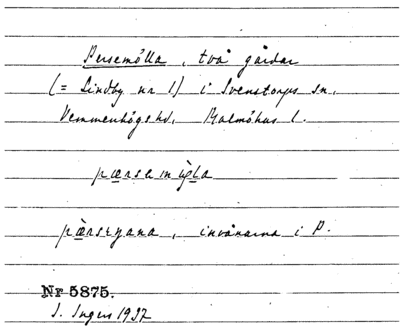 Persemölla, två gårdar
(= Lindby nr 1) i Svenstorps sn,
Vemmenhögs hd, Malmöhus l.
pærsamø̀la
pæ̀rsryana, invånarna i P.
Nr 5875.
I. Ingers 1937